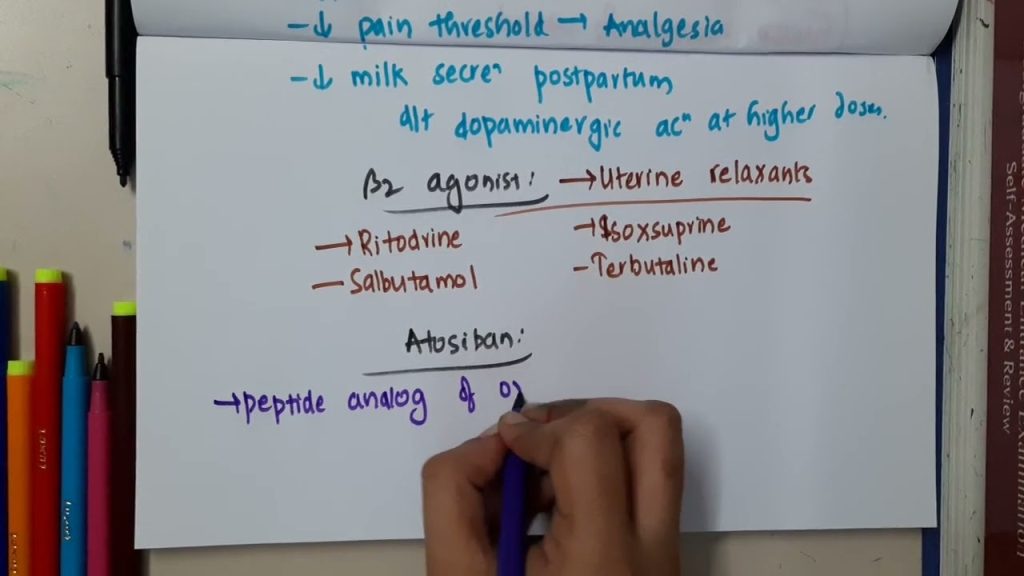 -↓ pain threshold → Analgesia
-↓ milk secreⁿ postpartum
d/t dopaminergic acⁿ at higher doses.
β2 agonist: → Uterine relaxants
→ Ritodrine → Isoxsuprine
- Salbutamol - Terbutaline
Atosiban:
→ peptide analog of
Self-Assessment & Review